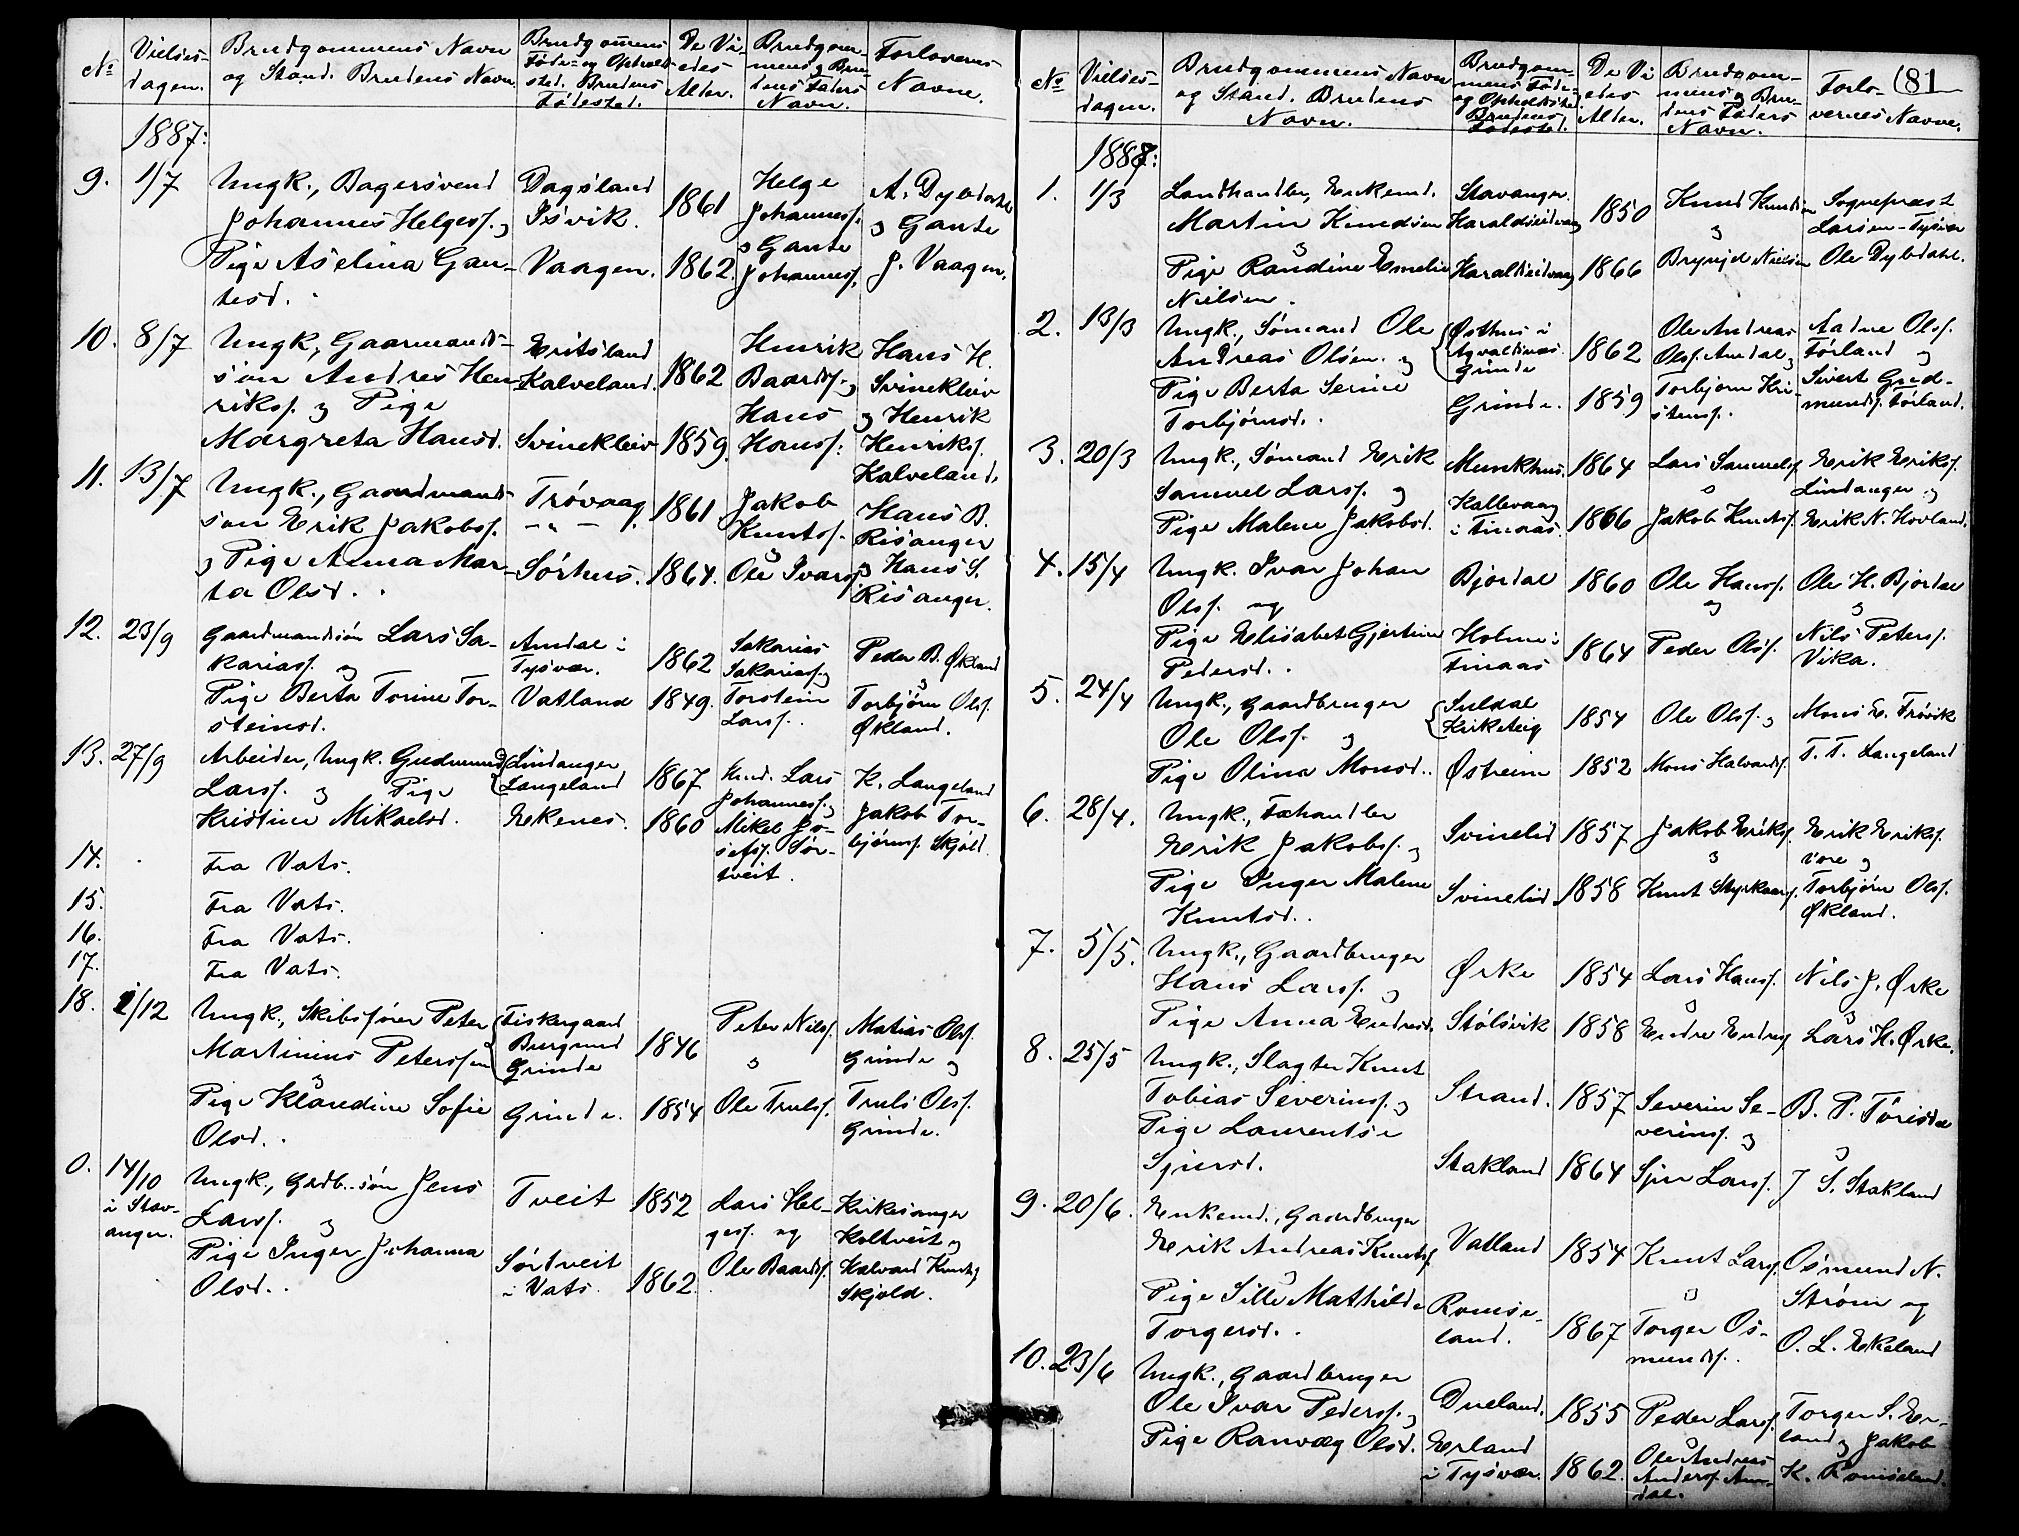 No
Vielses-
dagen.
Brudgommens Navn
og Stand. Brudens Navn.
Brudgommens
Føde- og Opholds-
sted. Brudens
Fødested.
De Vi-
edes
Alder.
Brudgom-
mens og Bru-
dens Faders
Navn.
Forlovernes
Navne.
1887:
9. 1/7
Ungk., Bagersvend
Johannes Helgess. og
Pige Aselina Gau-
tesd.
Dagsland
Isvik.
Vaagen.
1861
1862.
Helge
Johanness.
og Gaute
Johanness.
A. Dybdahl
og Gaute
J. Vaagen.
10. 8/7
Ungk., Gaarmands-
søn Andres Hen-
riks. og Pige
Margreta Hansd.
Eritsland
Kalveland.
Svinekleiv
1862
1859.
Henrik
Baards. og
Hans
Hanss.
Hans H.
Svinekleiv
og Henrik
Henriks.
Kalveland.
11. 13/7
Ungk., Gaardmands-
søn Erik Jakobs.
og Pige Anna Mar-
ta Olsd.
Trøvaag
– " –
Sørhus.
1861
1864.
Jakob
Knuts.
og
Ole Ivars.
Hans B.
Risanger
og Hans S.
Risanger.
12. 23/9
Gaardmandssøn Lars Sa-
karias. og
Pige Berta Torine Tor-
steinsd.
Amdal i
Tysvær.
Vatland
1862
1849.
Sakarias
Sakarias. og
Torstein
Lars.
Peder B. Økland
og
Torbjørn Ols.
Økland.
13. 27/9
Arbeider, Ungk. Gudmund
Larss. og Pige
Kristine Mikaelsd.
Lindanger
Langeland
Ekenes.
1867
1860
Lars
Johanness. og
Mikel Jo-
sefs. Sør-
tveit.
K. Langeland
Jakob Tor-
bjørns. Skjold.
14.
Fra Vats.
15.
Fra Vats.
16.
Fra Vats.
17.
Fra Vats.
18. 1/12
Ungk., Skibsfører Peter
Martinius Peterssen
og
Pige Klaudine Sofie
Olsd.
Fiskergaard
Burgund
Grinde
Grinde.
1846
1854
Peter Nils.
og
Ole Truls.
Matias Ols.
Grinde og
Truls Ols.
Grinde.
0. 14/10
i Stav-
anger.
Ungk., Grdb.-søn Jens
Larss. og
Pige Inger Johanna
Olsd.
Tveit
Sørtveit
i Vats.
1852
1862.
Lars Hel-
ges. og
Ole Baards.
Kirkesanger
Holtveit og
Halvard Knuts.
Skjold.
(81
No
Vielses-
dagen.
Brudgommens Navn
og Stand. Brudens
Navn.
Brudgom-
mens Føde-
og Opholdsted.
Brudens
Fødested.
De Vi-
edes
Alder.
Brudgom-
mens og Bru-
dens Faders
Navn.
Forlo-
vernes Navne.
1888:
1. 1/3
Landhandler, Enkemd.
Martin Knudsen
og
Pige Randine Emelie
Nielsen.
Stavanger.
Haraldseidvaag
Haraldseidvaag
1850
1866
Knud Knudsen
og
Brynjel Nielsen
Sognepræst
Larsen – Tysvær
Ole Dybdahl.
2. 13/3
Ungk., Sømand Ole
Andreas Olsen. og
Pige Berta Serine
Torbjørnsd.
Østhus i
Avaldsnes
Grinde
Grinde.
1862
1859
Ole Andreas
Ols. Amdal og
Torbjørn Kri-
stens.
Aadne Ols.
Førland og
Sivert Gud-
munds. Førland.
3. 20/3
Ungk., Sømand Erik
Samuel Larss. og
Pige Malene Jakobsd.
Munkhus.
Kallevaag
i Finaas.
1864
1866
Lars Samuels.
og
Jakob Knuts.
Erik Eriks.
Lindanger og
Erik N. Hovland.
4. 15/4
Ungk. Ivar Johan
Ols. og
Pige Elisabet Gjertine
Pedersd.
Bjordal
Holme i
Finaas
1860
1864
Ole Hans.
og
Peder Ols.
Ole H. Bjordal
og
Nils Peters.
Vika.
5. 24/4
Ungk., Gaardbruger
Ole Ols. og
Pige Olina Monsd.
Suldal
Kirketeig
Østreim
1854
1852
Ole Ols. og
Mons Halvards.
Mons E. Frøvik
T. T. Langeland
6. 28/4.
Ungk., Fæhandler
Erik Jakobs. og
Pige Inger Malene
Knutsd.
Svinelid
Svinelid
1857
1858
Jakob Eriks.
og
Knut Styrkaars.
Erik Eriks.
Øre og
Torbjørn Ols.
Økland.
7. 5/5.
Ungk., Gaardbruger
Hans Larss. og
Pige Anna Endresd.
Ørke
Stølsvik
1854
1858
Lars Hans.
og
Endre Endres.
Nils J. Ørke
og
Lars H. Ørke.
8. 25/5
Ungk., Slagter Knut
Tobias Severins. og
Pige Laurentse
Sjursd.
Strand.
Stakland
1857
1864
Severin Se-
verins. og
Sjur Lars.
B. P. Førisdal
og
J S. Stakland
9. 20/6.
Enkemd., Gaardbruger
Erik Andreas Knuts.
og
Pige Sille Mathilde
Torgersd.
Vatland
Romse-
land.
1854
1867
Knut Lars.
og
Torger Os-
munds.
Osmund N.
Strøm og
O. L. Ekeland
10. 23/6
Ungk., Gaardbruger
Ole Ivar Peders. og
Pige Ranvæg Olsd.
Dueland.
Erland
i Tysvær.
1855
1862.
Peder Lars.
og
Ole Andreas
Anders. Am-
dal.
Torger S. Er-
land og Jakob
K. Romseland.